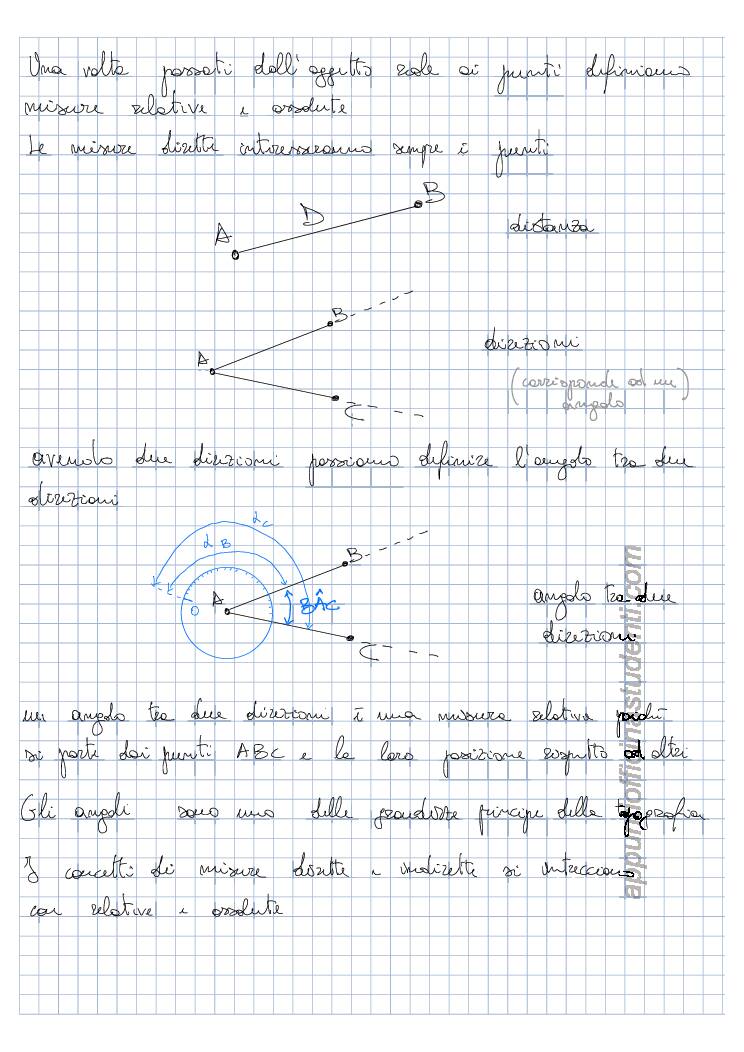 Una volta passati dall'oggetto reale ai punti definiamo
misure relative e assolute
Le misure dirette interesseranno sempre i punti
A D B
distanza
A B C
direzioni
(corrisponde ad un
angolo)
avendo due direzioni possiamo definire l'angolo tra due
direzioni
αc
αB
0 A B C
BÂC
angolo tra due
direzioni
un angolo tra due direzioni è una misura relativa poiché
si parte dai punti ABC e la loro posizione rispetto ad altri
Gli angoli sono una delle grandezze principe della topografia
I concetti di misure dirette e indirette si intrecciano
con relative e assolute
appuntiofficinastudenti.com